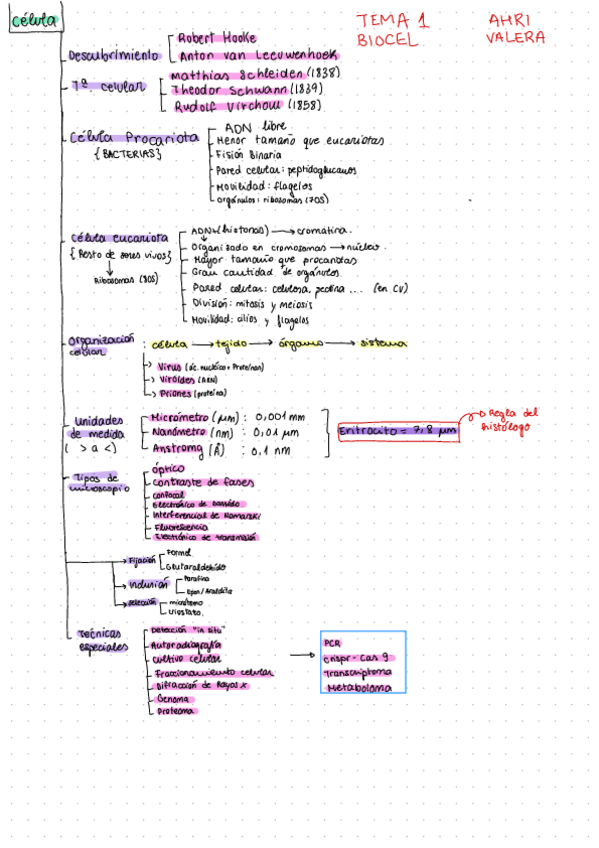 célula
TEMA 1
BIOCEL
AHRI
VALERA
Descubrimiento
Robert Hooke
Anton van Leeuwenhoek
Tª celular
Matthias Schleiden (1838)
Theodor Schwann (1839)
Rudolf Virchow (1858)
Célula Procariota
{BACTERIAS}
ADN libre
Menor tamaño que eucariotas
Fisión Binaria
Pared celular: peptidoglucanos
Movilidad: flagelos
Orgánulos: ribosomas (70S)
Célula eucariota
{Resto de seres vivos}
Ribosomas (80S)
ADN (histonas) → cromatina.
Organizado en cromosomas → núcleo.
Mayor tamaño que procariotas
Gran cantidad de orgánulos
Pared celular: celulosa, pectina ... (en CV)
División: mitosis y meiosis
Movilidad: cilios y flagelos
Organización celular
: célula → tejido → órgano → sistema
→ Virus (ác. nucleico + Proteínas)
→ Viroides (ARN)
→ Priones (proteína)
Unidades de medida
( > a < )
Micrómetro (μm) : 0,001 mm
Nanómetro (nm) : 0,01 μm
Anstromg (Å) : 0,1 nm
Eritrocito = 7,8 μm
Regla del histólogo
Tipos de microscopio
óptico
Contraste de fases
Confocal
Electrónico de barrido
Interferencial de Nomarski
Fluorescencia
Electrónico de transmisión
→ Fijación
Formol
Glutaraldehído
→ inclusión
Parafina
Epon/Araldita
→ selección
microtomo
Criostato.
Técnicas especiales
Detección "in situ"
Autorradiografía
Cultivo celular
Fraccionamiento celular
Difracción de Rayos X
Genoma
Proteoma
→
PCR
crispr-Cas 9
Transcriptoma
Metaboloma